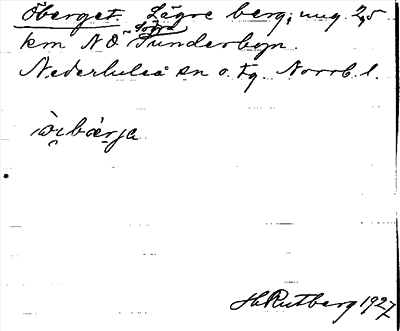 Öberget. Lägre berg, ung. 2,5
km NO Södra Sunderbyn.
Nederluleå sn o. tg. Norrb. l.
H Rutberg 1927